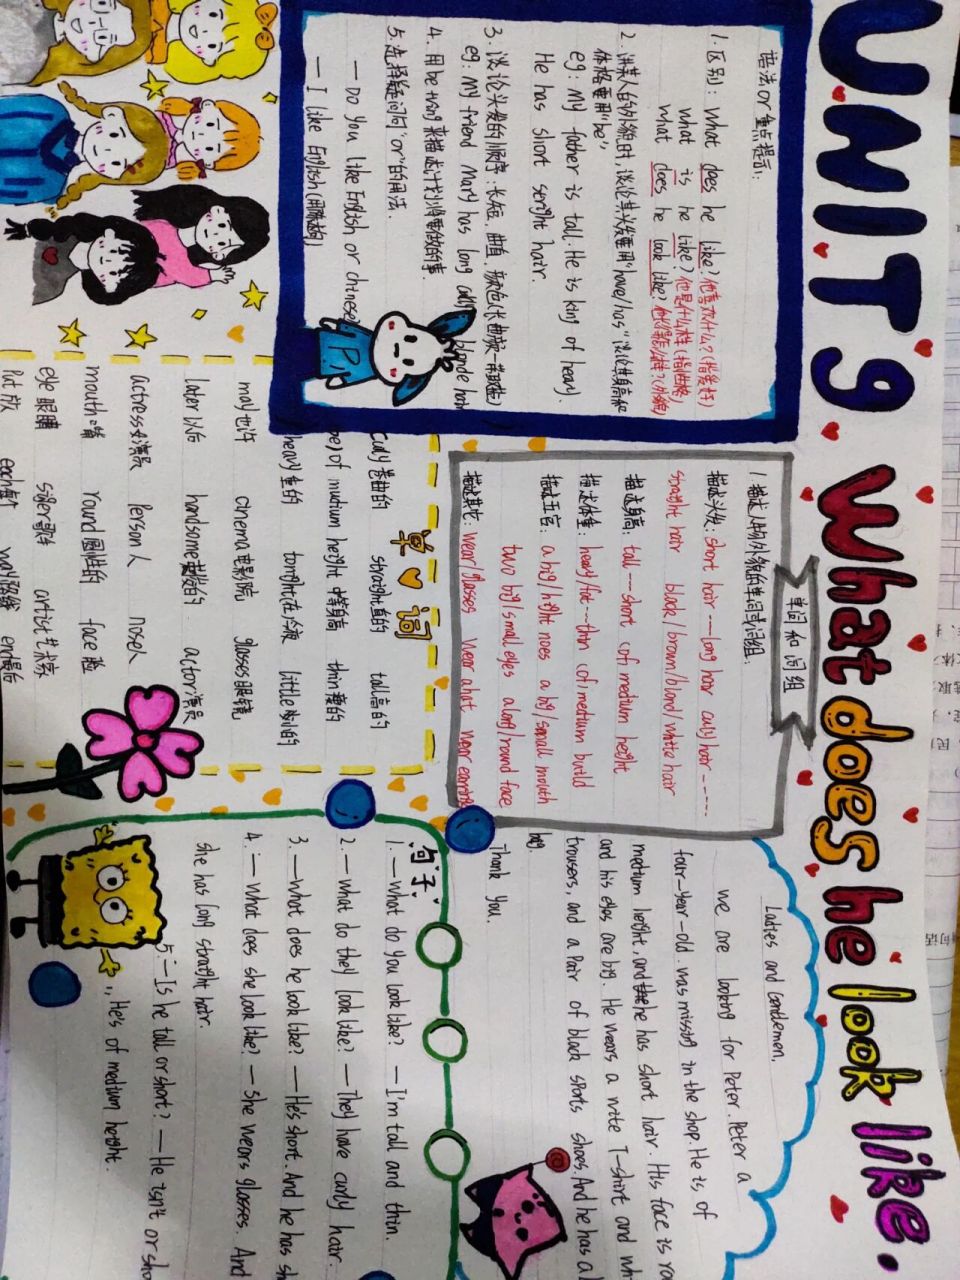 UNIT 9 What does he look like.
语法or重点提示:
1.区别: what does he like? 他喜欢什么? (指爱好)
what is he like? 他是什么样 (指性格)
what does he look like? 他长得怎么样? (外貌)
2. 讲某人的外貌时, 谈论其头发要用"have/has" 谈论其身高和
体格要用"be"
eg: My father is tall. He is king of heavy.
He has short
hair.
3. 谈论头发的顺序: 长短, 曲直, 颜色
eg: My friend Mary has long curly blonde hair
4. 用be+ing来描述计划将要做的事.
5. 选择疑问句"or"的用法.
— Do you like English or chinese
— I like English
单词和词组
1.描述人物外貌的单词或词组.
描述头发: short hair ---- long hair curly hair ------
straight hair black/brown/blond/white hair
描述身高: tall --- short (of) medium height
描述体重: heavy/fat --- thin (of) medium build
描述五官: a big/ noes a big/small mouth
two big/small eyes a long/round face
描述其它: wear/glasses wear a hat wear earring
单词
curly 卷曲的 straight 直的 tall 高的
(be) of mudium height 中等身高 thin 瘦的
heavy 重的 tonight 在今夜 little 小的
may 也许 cinema 电影院 glasses 眼镜
later 以后 handsome 英俊的 actor 演员
actress 女演员 person 人 nose 人
mouth 嘴 round 圆形的 face 脸
eye 眼睛 singer 歌手 artist 艺术家
put 放 each 每个 way 路线 end 最后
Ladies and Gentlemen.
we are looking for Peter. Peter a
four-year-old. was missing in the shop. He is of
medium height, and he has short hair. His face is ro
and his eyes are big. He wears a T-shirt and wh
trousers, and a Pair of black sports shoes. And he has a
bag.
Thank you.
句子
1. — What do you look like? — I'm tall and thin.
2. — what do they look like? — They have curly hair.
3. — what does he look like? — He's short. And he has s
4. — What does she look like? — She wears glasses. And
she has long straight hair.
5. — Is he tall or short? — He isn't or sho
He's of medium height.